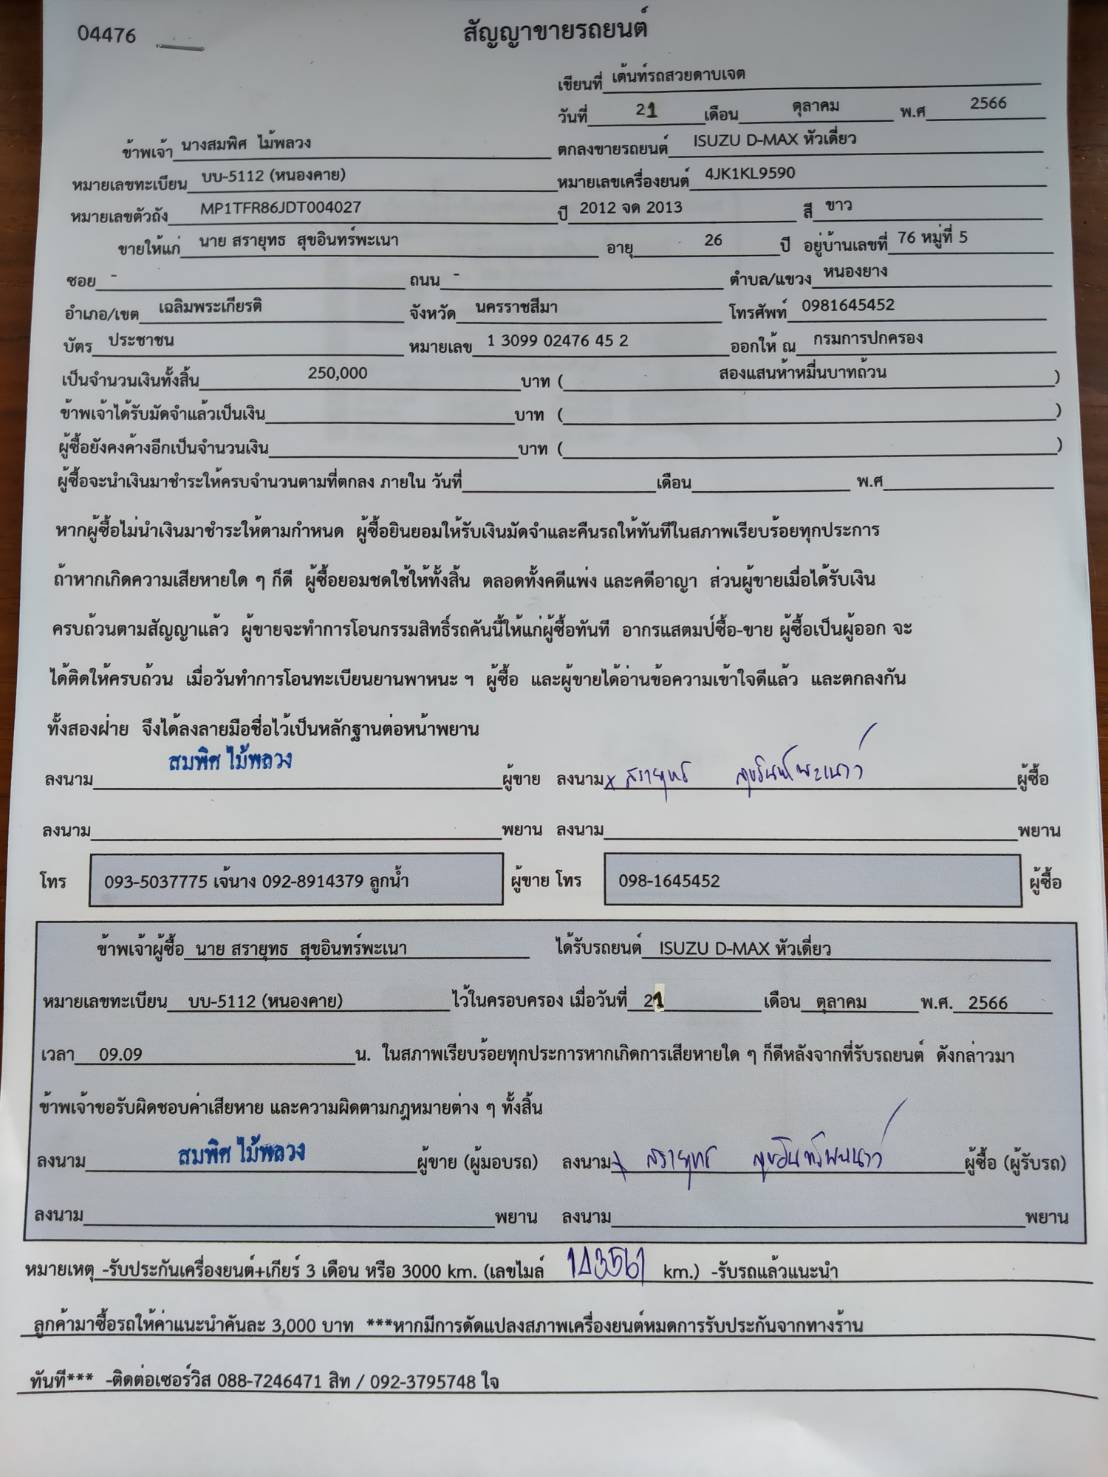 04476
สัญญาขายรถยนต์
เขียนที่ เต้นท์รถสวยดาบเจต
วันที่ 21 เดือน ตุลาคม พ.ศ 2566
ข้าพเจ้า นางสมพิศ ไม้พลวง ตกลงขายรถยนต์ ISUZU D-MAX หัวเดี่ยว
หมายเลขทะเบียน บบ-5112 (หนองคาย) หมายเลขเครื่องยนต์ 4JK1KL9590
หมายเลขตัวถัง MP1TFR86JDT004027 ปี 2012 จด 2013 สี ขาว
ขายให้แก่ นาย สรายุทธ สุขอินทร์พะเนา อายุ 26 ปี อยู่บ้านเลขที่ 76 หมู่ที่ 5
ซอย - ถนน - ตำบล/แขวง หนองยาง
อำเภอ/เขต เฉลิมพระเกียรติ จังหวัด นครราชสีมา โทรศัพท์ 0981645452
บัตร ประชาชน หมายเลข 1 3099 02476 45 2 ออกให้ ณ กรมการปกครอง
เป็นจำนวนเงินทั้งสิ้น 250,000 บาท ( สองแสนห้าหมื่นบาทถ้วน )
ข้าพเจ้าได้รับมัดจำแล้วเป็นเงิน บาท ( )
ผู้ซื้อยังคงค้างอีกเป็นจำนวนเงิน บาท ( )
ผู้ซื้อจะนำเงินมาชำระให้ครบจำนวนตามที่ตกลง ภายใน วันที่ เดือน พ.ศ
หากผู้ซื้อไม่นำเงินมาชำระให้ตามกำหนด ผู้ซื้อยินยอมให้รับเงินมัดจำและคืนรถให้ทันทีในสภาพเรียบร้อยทุกประการ
ถ้าหากเกิดความเสียหายใด ๆ ก็ดี ผู้ซื้อยอมชดใช้ให้ทั้งสิ้น ตลอดทั้งคดีแพ่ง และคดีอาญา ส่วนผู้ขายเมื่อได้รับเงิน
ครบถ้วนตามสัญญาแล้ว ผู้ขายจะทำการโอนกรรมสิทธิ์รถคันนี้ให้แก่ผู้ซื้อทันที อากรแสตมป์ซื้อ-ขาย ผู้ซื้อเป็นผู้ออก จะ
ได้ติดให้ครบถ้วน เมื่อวันทำการโอนทะเบียนยานพาหนะ ฯ ผู้ซื้อ และผู้ขายได้อ่านข้อความเข้าใจดีแล้ว และตกลงกัน
ทั้งสองฝ่าย จึงได้ลงลายมือชื่อไว้เป็นหลักฐานต่อหน้าพยาน
ลงนาม สมพิศ ไม้พลวง ผู้ขาย ลงนาม x สรายุทธ สุขอินทร์พะเนาว์ ผู้ซื้อ
ลงนาม พยาน ลงนาม พยาน
โทร 093-5037775 เจ้นาง 092-8914379 ลูกน้ำ ผู้ขาย โทร 098-1645452 ผู้ซื้อ
ข้าพเจ้าผู้ซื้อ นาย สรายุทธ สุขอินทร์พะเนา ได้รับรถยนต์ ISUZU D-MAX หัวเดี่ยว
หมายเลขทะเบียน บบ-5112 (หนองคาย) ไว้ในครอบครอง เมื่อวันที่ 21 เดือน ตุลาคม พ.ศ. 2566
เวลา 09.09 น. ในสภาพเรียบร้อยทุกประการหากเกิดการเสียหายใด ๆ ก็ดีหลังจากที่รับรถยนต์ ดังกล่าวมา
ข้าพเจ้าขอรับผิดชอบค่าเสียหาย และความผิดตามกฎหมายต่าง ๆ ทั้งสิ้น
ลงนาม สมพิศ ไม้พลวง ผู้ขาย (ผู้มอบรถ) ลงนาม x สรายุทธ สุขอินทร์พะเนาว์ ผู้ซื้อ (ผู้รับรถ)
ลงนาม พยาน ลงนาม พยาน
หมายเหตุ -รับประกันเครื่องยนต์+เกียร์ 3 เดือน หรือ 3000 km. (เลขไมล์ km.) -รับรถแล้วแนะนำ
ลูกค้ามาซื้อรถให้ค่าแนะนำคันละ 3,000 บาท ***หากมีการดัดแปลงสภาพเครื่องยนต์หมดการรับประกันจากทางร้าน
ทันที*** -ติดต่อเซอร์วิส 088-7246471 สิท / 092-3795748 ใจ